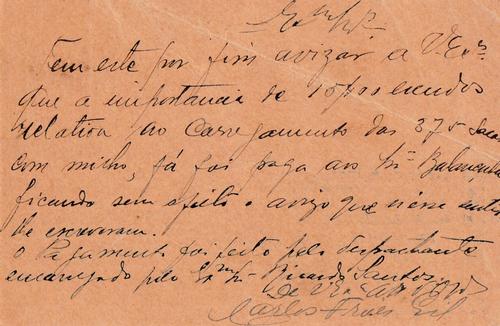 Exmº Snr.
Tem este por fim avizar a V. Exª
que a importancia de escudos
relativa ao carregamento das 375 sacas
com milho, já foi paga ao Sr.
ficando sem efeito o avizo que n'esse
lhe escreveram.
O Pagamento foi feito pelo despachante
encarregado pelo Exmº Snr Ricardo Santos.
De V. Exª
Carlos Gil